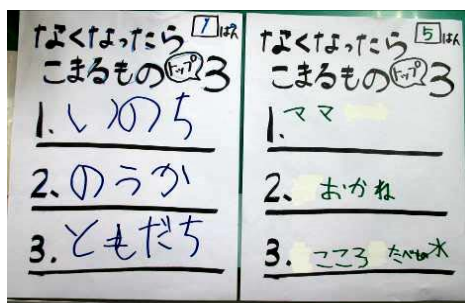 なくなったら 1 はん
こまるもの トップ 3
1. いのち
2. のうか
3. ともだち
なくなったら 5 はん
こまるもの トップ 3
1. ママ
2. おかね
3. こころ たべもの 水